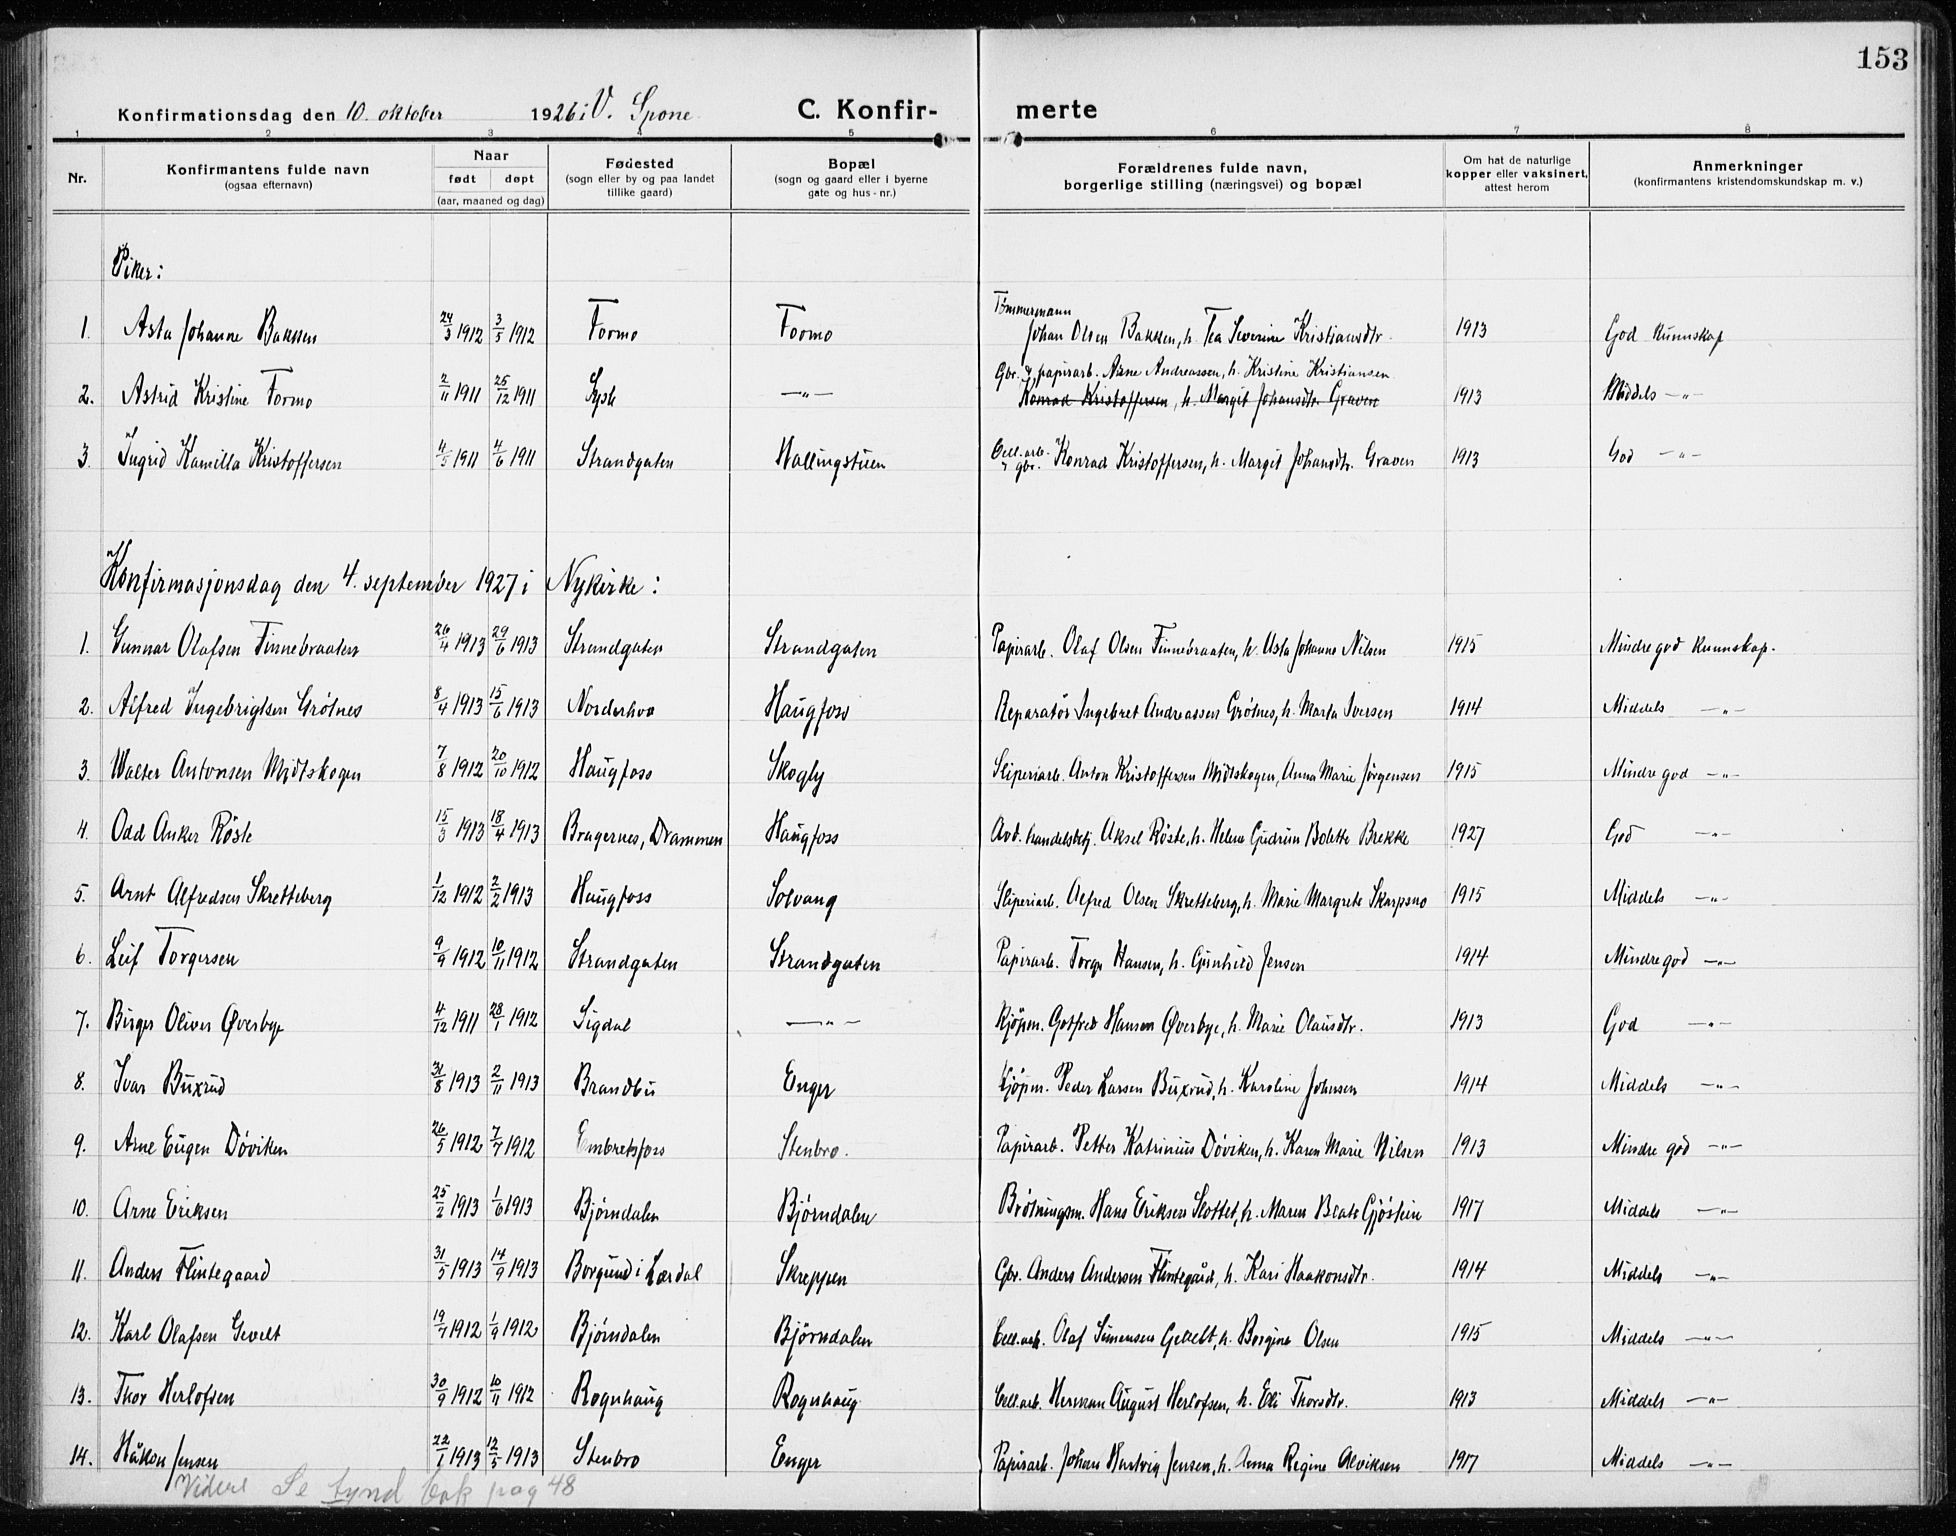 153
Konfirmationsdag den 10. oktober 1926 i V. Spone C. Konfir- merte
1 2 3 4 5 6 7 8
Nr. Konfirmantens fulde navn (ogsaa efternavn) Naar født døpt (aar, maaned og dag) Fødested (sogn eller by og paa landet tillike gaard) Bopæl (sogn og gaard eller i byerne gate og hus-nr.) Forældrenes fulde navn, borgerlige stilling (næringsvei) og bopæl Om hat de naturlige kopper eller vaksinert, attest herom Anmerkninger (konfirmantens kristendomskundskap m. v.)
Piker:
1. Asta Johanne Bakken 24/3 1912 3/5 1912 Formo Formo Tømmermann Johan Olsen Bakken, h. Tea Severine Kristiansdtr. 1913 God kunnskap
2. Astrid Kristine Formo 2/11 1911 25/12 1911 —"— Gbr. & papirarb. Arne Andreassen, h. Kristine Kristiansen Konrad Kristoffersen, h. Margit Johansdtr. Graven 1913 Middels —"—
3. Ingrid Kamilla Kristoffersen 4/5 1911 4/6 1911 Strandgaten Hallingstuen Cell.arb. & gbr. Konrad Kristoffersen, h. Margit Johansdtr. Graven 1913 God —"—
Konfirmasjonsdag den 4. september 1927 i Nykirke:
1. Gunnar Olafsen Finnebraaten 26/4 1913 29/6 1913 Strandgaten Strandgaten Papirarb. Olaf Olsen Finnebraaten, h. Asta Johanne Nilsen 1915 Mindre god kunnskap.
2. Alfred Ingebrigtsen Grøtnes 8/4 1913 15/6 1913 Norderhov Haugfoss Reparatør Ingebret Andreassen Grøtnes, h. Marta Iversen 1914 Middels —"—
3. Walter Antonsen Midtskogen 7/8 1912 20/10 1912 Haugfoss Skogly Sliperiarb. Anton Kristoffersen Midtskogen, Anna Marie Jørgensen 1915 Mindre god —"—
4. Odd Anker Røste 15/3 1913 18/4 1913 Bragernes, Drammen Haugfoss Avd. handelsbetj. Aksel Røste, h. Helene Gudrun Bolette Brekke 1927 God —"—
5. Arnt Alfredsen Skretteberg 1/12 1912 2/2 1913 Haugfoss Solvang Sliperiarb. Alfred Olsen Skretteberg, h. Marie Margrete Skarpsno 1915 Middels —"—
6. Leif Torgersen 9/9 1912 10/11 1912 Strandgaten Strandgaten Papirarb. Torge Hansen, h. Gunhild Jensen 1914 Mindre god —"—
7. Birger Oliver Øverbye 4/12 1911 28/1 1912 Sigdal —"— Kjøpm. Gotfred Hansen Øverbye, h. Marie Olausdtr. 1913 God —"—
8. Ivar Buxrud 31/8 1913 2/11 1913 Brandbu Enger Kjøpm. Peder Larsen Buxrud, h. Karoline Johnsen 1914 Middels —"—
9. Arne Eugen Døviken 26/5 1912 7/7 1912 Embretsfoss Stenbro. Papirarb. Petter Katrinius Døviken, h. Karen Marie Nilsen 1913 Mindre god —"—
10. Arne Eriksen 25/2 1913 1/6 1913 Bjørndalen Bjørndalen Brøtningsm. Hans Eriksen Slottet, h. Maren Beate Gjøstein 1917 Middels —"—
11. Anders Flintegaard 31/5 1913 14/9 1913 Borgund i Lærdal Skreppen Gbr. Anders Andersen Flintegård, h. Kari Haakonsdtr. 1914 Middels —"—
12. Karl Olafsen Gevelt 19/7 1912 1/9 1912 Bjørndalen Bjørndalen Cell.arb. Olaf Simensen Gevelt, h. Borgine Olsen 1915 Middels —"—
13. Thor Herlofsen 30/9 1912 10/11 1912 Rognhaug Rognhaug Cell.arb. Herman August Herlofsen, h. Eli Thorsdtr. 1913 Middels —"—
14. Håkon Jensen 22/1 1913 12/5 1913 Stenbro Enger Papirarb. Johan Hartvig Jensen, h. Anna Regine Alviksen 1917 Middels —"—
Videre Se tynd bok pag 48